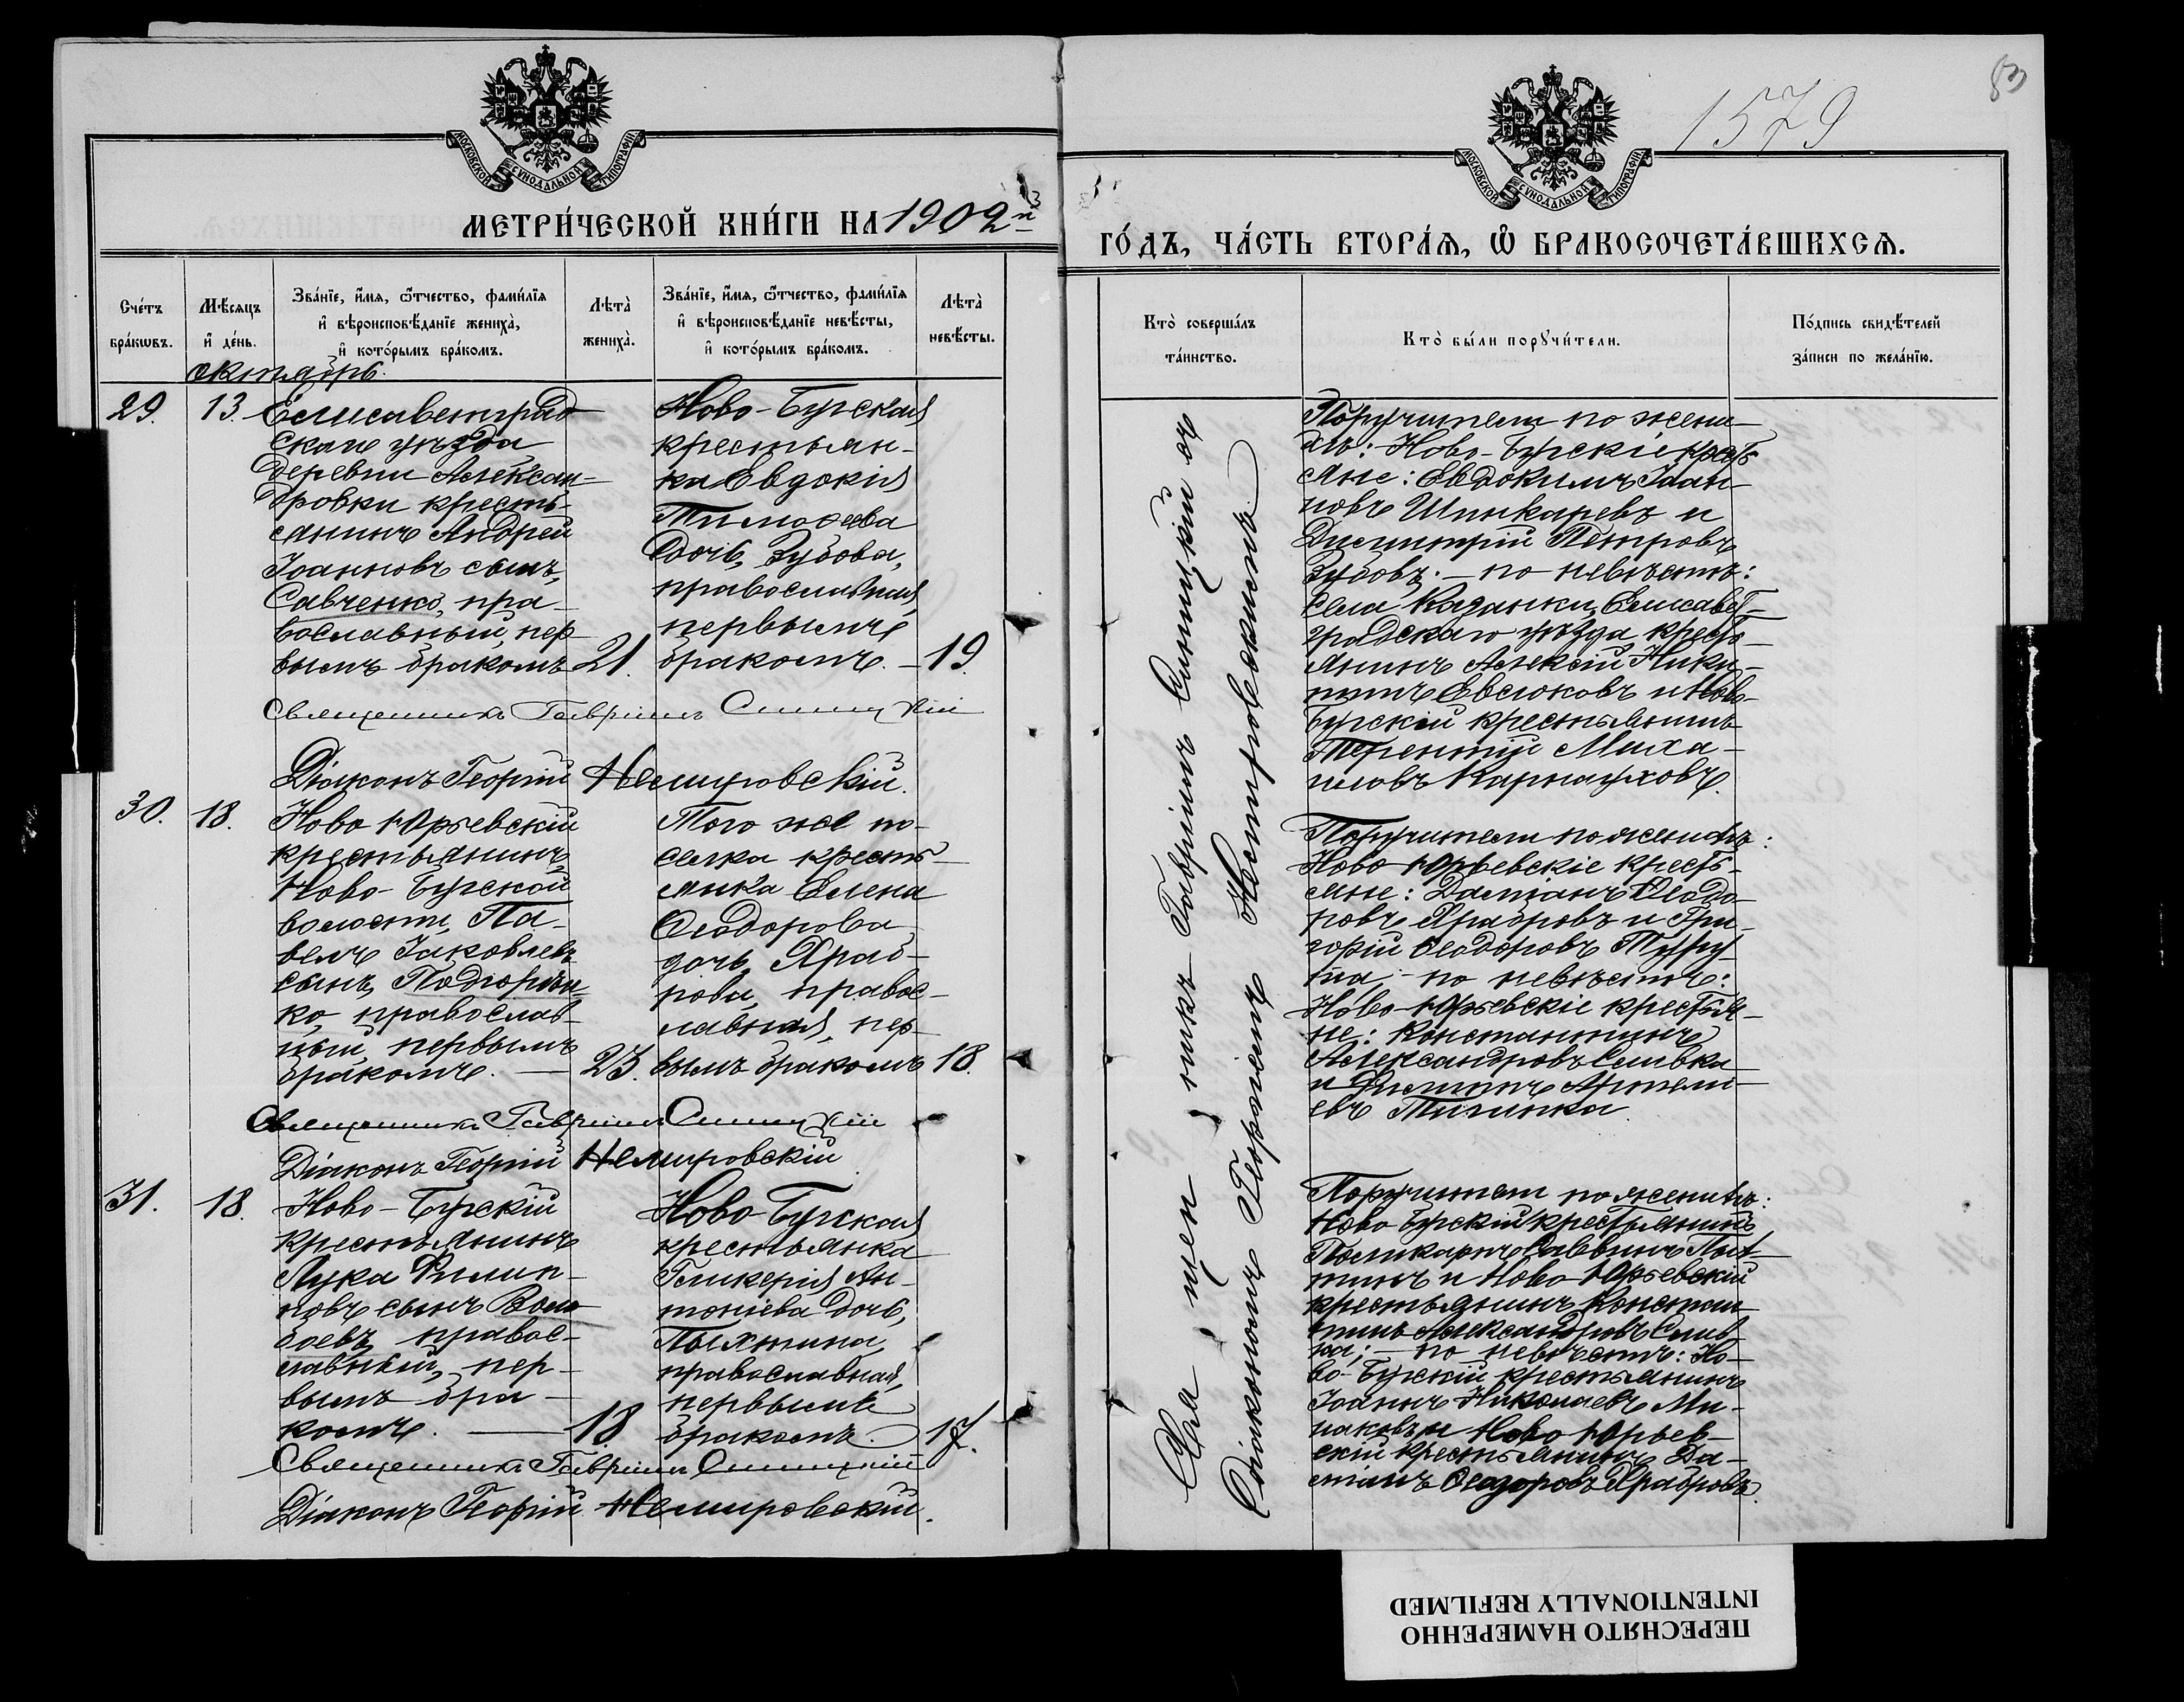 83
1579
МОСКОВСКОЙ СѴНОДАЛЬНОЙ ТИПОГРАФІИ
МОСКОВСКОЙ СѴНОДАЛЬНОЙ ТИПОГРАФІИ
МЕТРИ́ЧЕСКОЙ КНИ́ГИ НА 1902й
ГО́ДЪ, ЧА́СТЬ ВТОРА́Я, Ѿ БРАКОСОЧЕТА́ВШИХСЯ.
Сче́тъ бра́кѡвъ.
Мѣ́сяцъ и҆ де́нь.
Зва́нїе, и҆́мя, ѻ҆́тчество, фами́лїя и҆ вѣроисповѣ́данїе жениха̀, и҆ кото́рымъ бра́комъ.
Лѣта̀ жениха̀.
Зва́нїе, и҆́мя, ѻ҆́тчество, фами́лїя и҆ вѣроисповѣ́данїе невѣ́сты, и҆ кото́рымъ бра́комъ.
Лѣта̀ невѣ́сты.
Кто̀ соверша́лъ та́инство.
Кто̀ бы́ли порꙋчи́тели.
По́дпись свидѣ́телей за́писи по жела́нїю.
октябрь.
29.
13.
Елисаветград
скаго уѣзда
деревни Алексан-
дровки кресть-
янинъ Андрей
Іоанновъ сынъ,
Савченко, пра-
вославный, пер-
вымъ бракомъ
21.
Ново-Бугская
крестьян-
ка Евдокія
Тимоѳеева
дочь, Зубова,
православная,
первымъ
бракомъ. -
19.
Священникъ Гавріилъ Синицкій
Діаконъ Георгій Немировскій.
Поручители по жени-
хѣ: Ново-Бугскіе крестъ
яне: Евдокимъ Іоан-
новъ Шинкаревъ и
Димитрій Петровъ
Зубовъ; - по невѣстѣ:
села Казанки, Елисавет-
градскаго уѣзда кресть-
янинъ Алексій Ники-
тинъ Евсюковъ и Ново-
Бугскій крестьянинъ
Терентій Миха-
иловъ Карнауховъ.
30.
18.
Ново Юрьевскій
крестьянинъ
Ново-Бугской
волости, Па-
велъ Іаковлевъ
сынъ, Подгорѣн-
ко, православ-
ный, первымъ
бракомъ. -
23.
Того же по-
селка кресть-
янка Елена
Ѳеодорова
дочь, Храб-
рова, правос-
лавная, пер-
вымъ бракомъ
18.
Священникъ Гавріилъ Синицкій
Діаконъ Георгій Немировскій
Поручители по женихѣ:
Ново-Юрьевскіе кресть-
яне: Даміанъ Ѳеодо
ровъ Храбровъ и Гри-
горій Ѳеодоровъ
- по невѣстѣ:
Ново-Юрьевскіе крестья-
не: Константинъ
Александровъ Сливка
и Филиппъ Артеми-
евъ
31.
18.
Ново-Бугскій
крестьянинъ
Лука Филип-
повъ сынъ
правос-
лавный, пер-
вымъ бра-
комъ. -
18.
Ново-Бугская
крестьянка
Гликерія Ан-
тоніева дочь,
Пыхтина,
православная,
первымъ
бракомъ.
17.
Священникъ Гавріилъ Синицкій
Діаконъ Георгій Немировскій.
Поручители по женихѣ:
Ново Бугскій крестьянинъ
Поликарпъ Саввинъ Пых-
тинъ и Ново Юрьевскій
крестьянинъ Констан-
тинъ Александровъ Слив-
ка; - по невѣстѣ: Но-
во-Бугскій крестьянинъ
Іоаннъ Николаевъ Ми-
наковъ и Ново Юрьев-
скій крестьянинъ Да-
міанъ Ѳеодоровъ Храбровъ.
Священникъ Гавріилъ Синицкій съ
Діакономъ Георгіемъ Немировскимъ.
ПЕРЕСНЯТО НАМЕРЕННО
INTENTIONALLY REFILMED